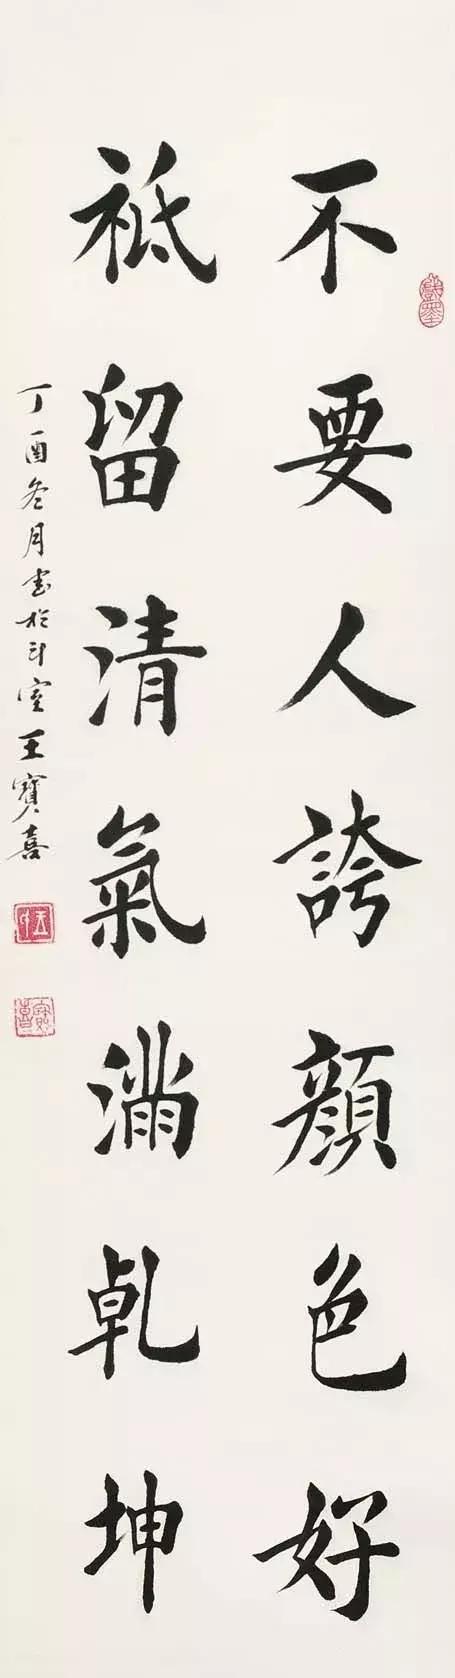 不要人誇顔色好
祗留清氣滿乾坤
丁酉冬月书於斗室王寶喜